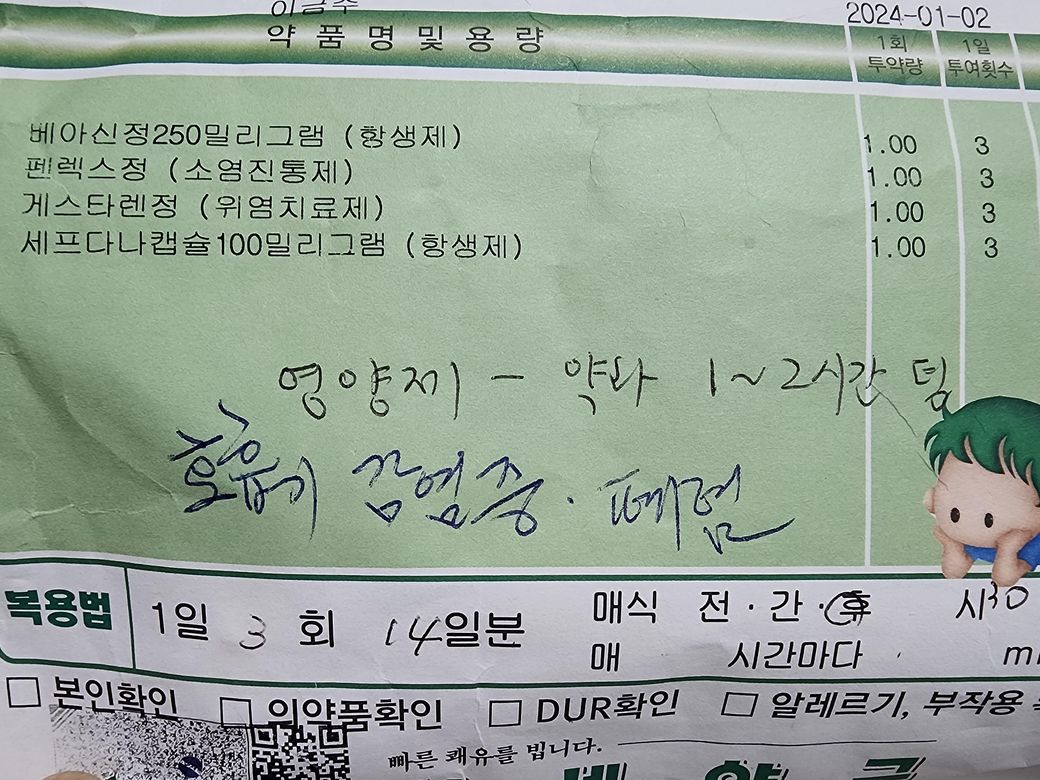 2024-01-02
약 품 명 및 용 량
1회 투약량
1일 투여횟수
베아신정250밀리그램 (항생제) 1.00 3
펜렉스정 (소염진통제) 1.00 3
게스타렌정 (위염치료제) 1.00 3
세프다나캡슐100밀리그램 (항생제) 1.00 3
영양제 - 약과 1~2시간 텀
호흡기 감염증. 폐렴
복용법 1일 3 회 14일분 매식 전·간·후 시30
매 시간마다
□ 본인확인 □ 의약품확인 □ DUR확인 □ 알레르기, 부작용
빠른 쾌유를 빕니다.